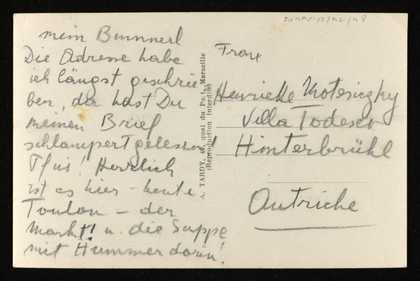 mein Bunnerl
Die Adresse habe
ich längst geschrie
ben, da hast Du
meinen Brief
schlampert gelesen
Pfui! Herrlich
ist es hier – heute
Toulon – der
Markt! u. die Suppe
mit Hummer darin!
TARDY, Quai du Port, Marseille
(Reproduction interdite)
Frau
Henriette Motesiczky
Villa Todesco
Hinterbrühl
Autriche